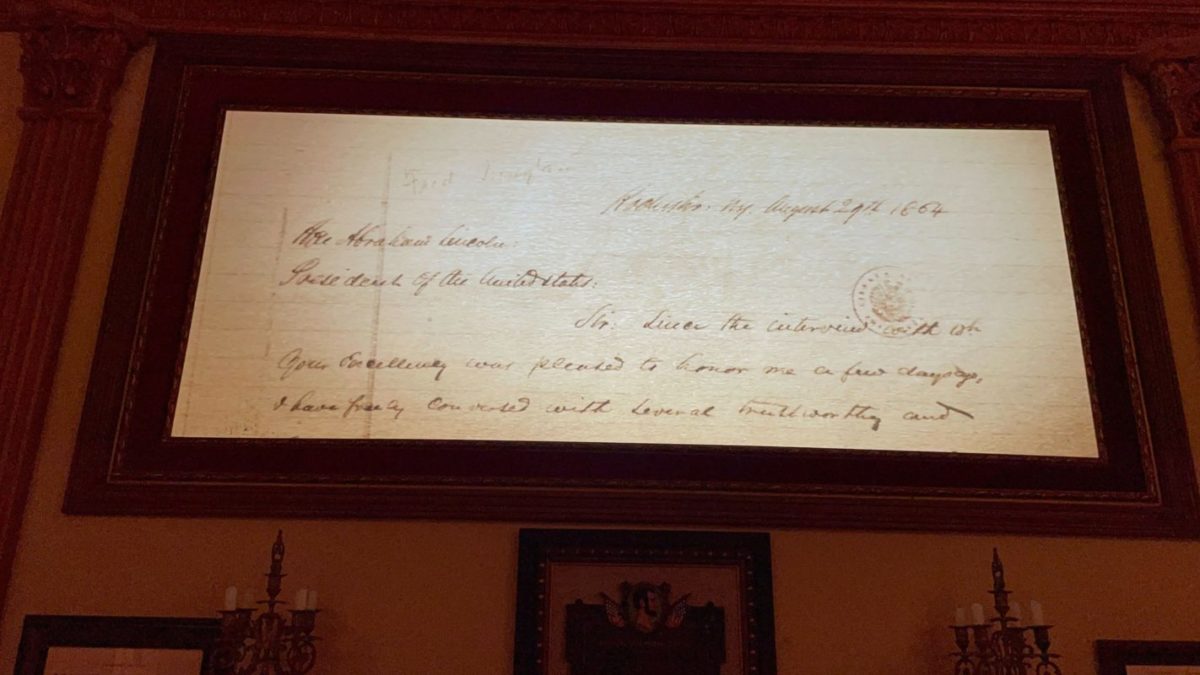 Fred Douglass
Rochester. N.Y. August 29th 1864
Hon Abraham Lincoln:
President of the United States:
Sir: Since the interview with wh
Your Excellency was pleased to honor me a few days ago,
I have freely conversed with several trustworthy and